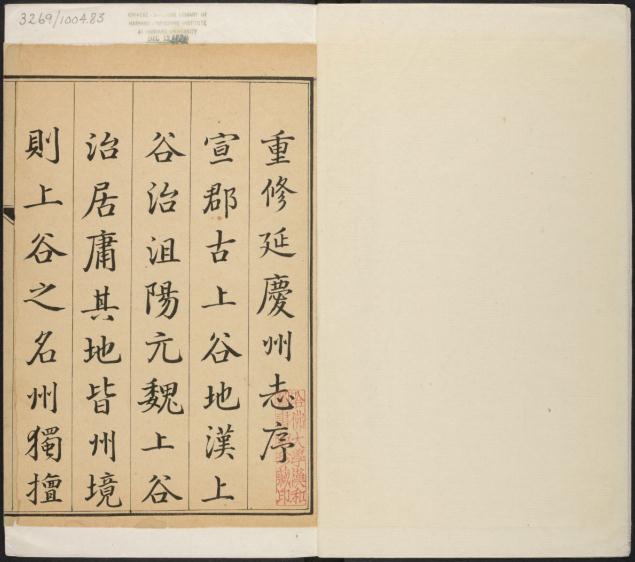 3269/1004.83
重修延慶州志序
宣郡古上谷地漢上
谷治沮陽元魏上谷
治居庸其地皆州境
則上谷之名州獨擅
哈佛大學漢和
圖書館珍藏印